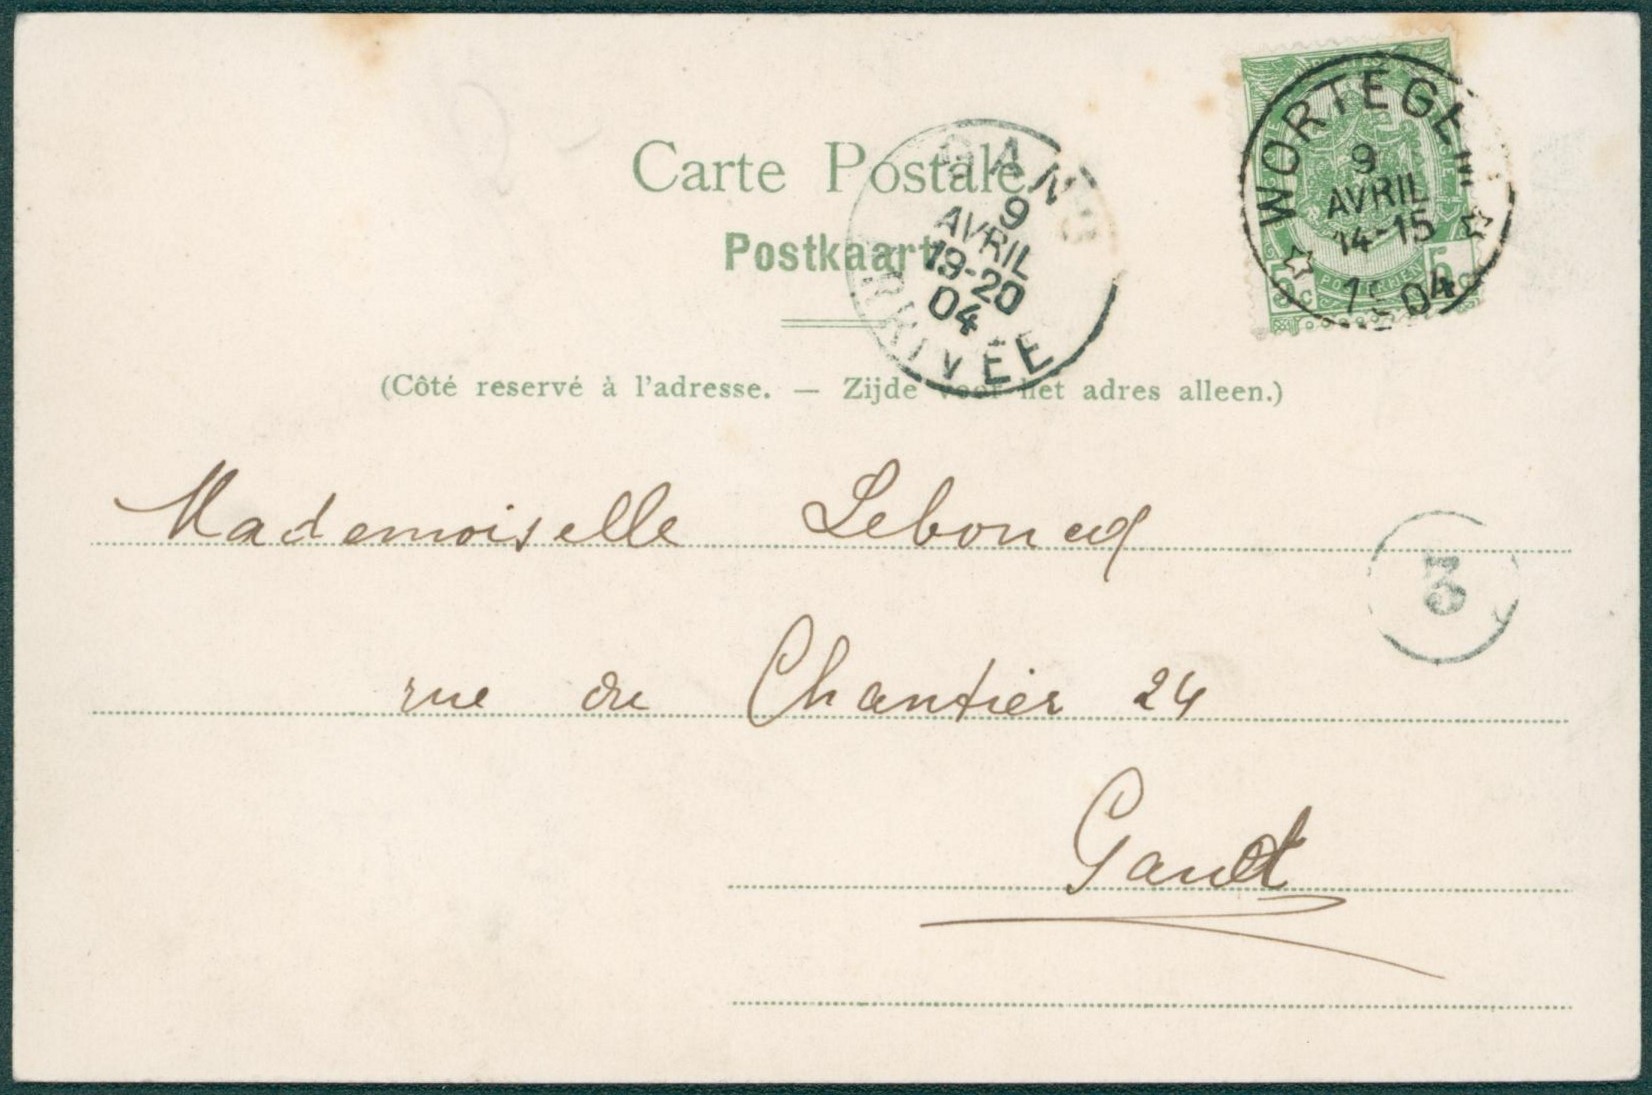 Carte Postale
Postkaart
(Côté reservé à l'adresse. — Zijde voor het adres alleen.)
GAND
9
AVRIL
19-20
04
ARRIVÉE
WORTEGEM
9
AVRIL
14-15
1904
5c
5c
Mademoiselle Leboucq
3
rue du Chantier 24
Gand